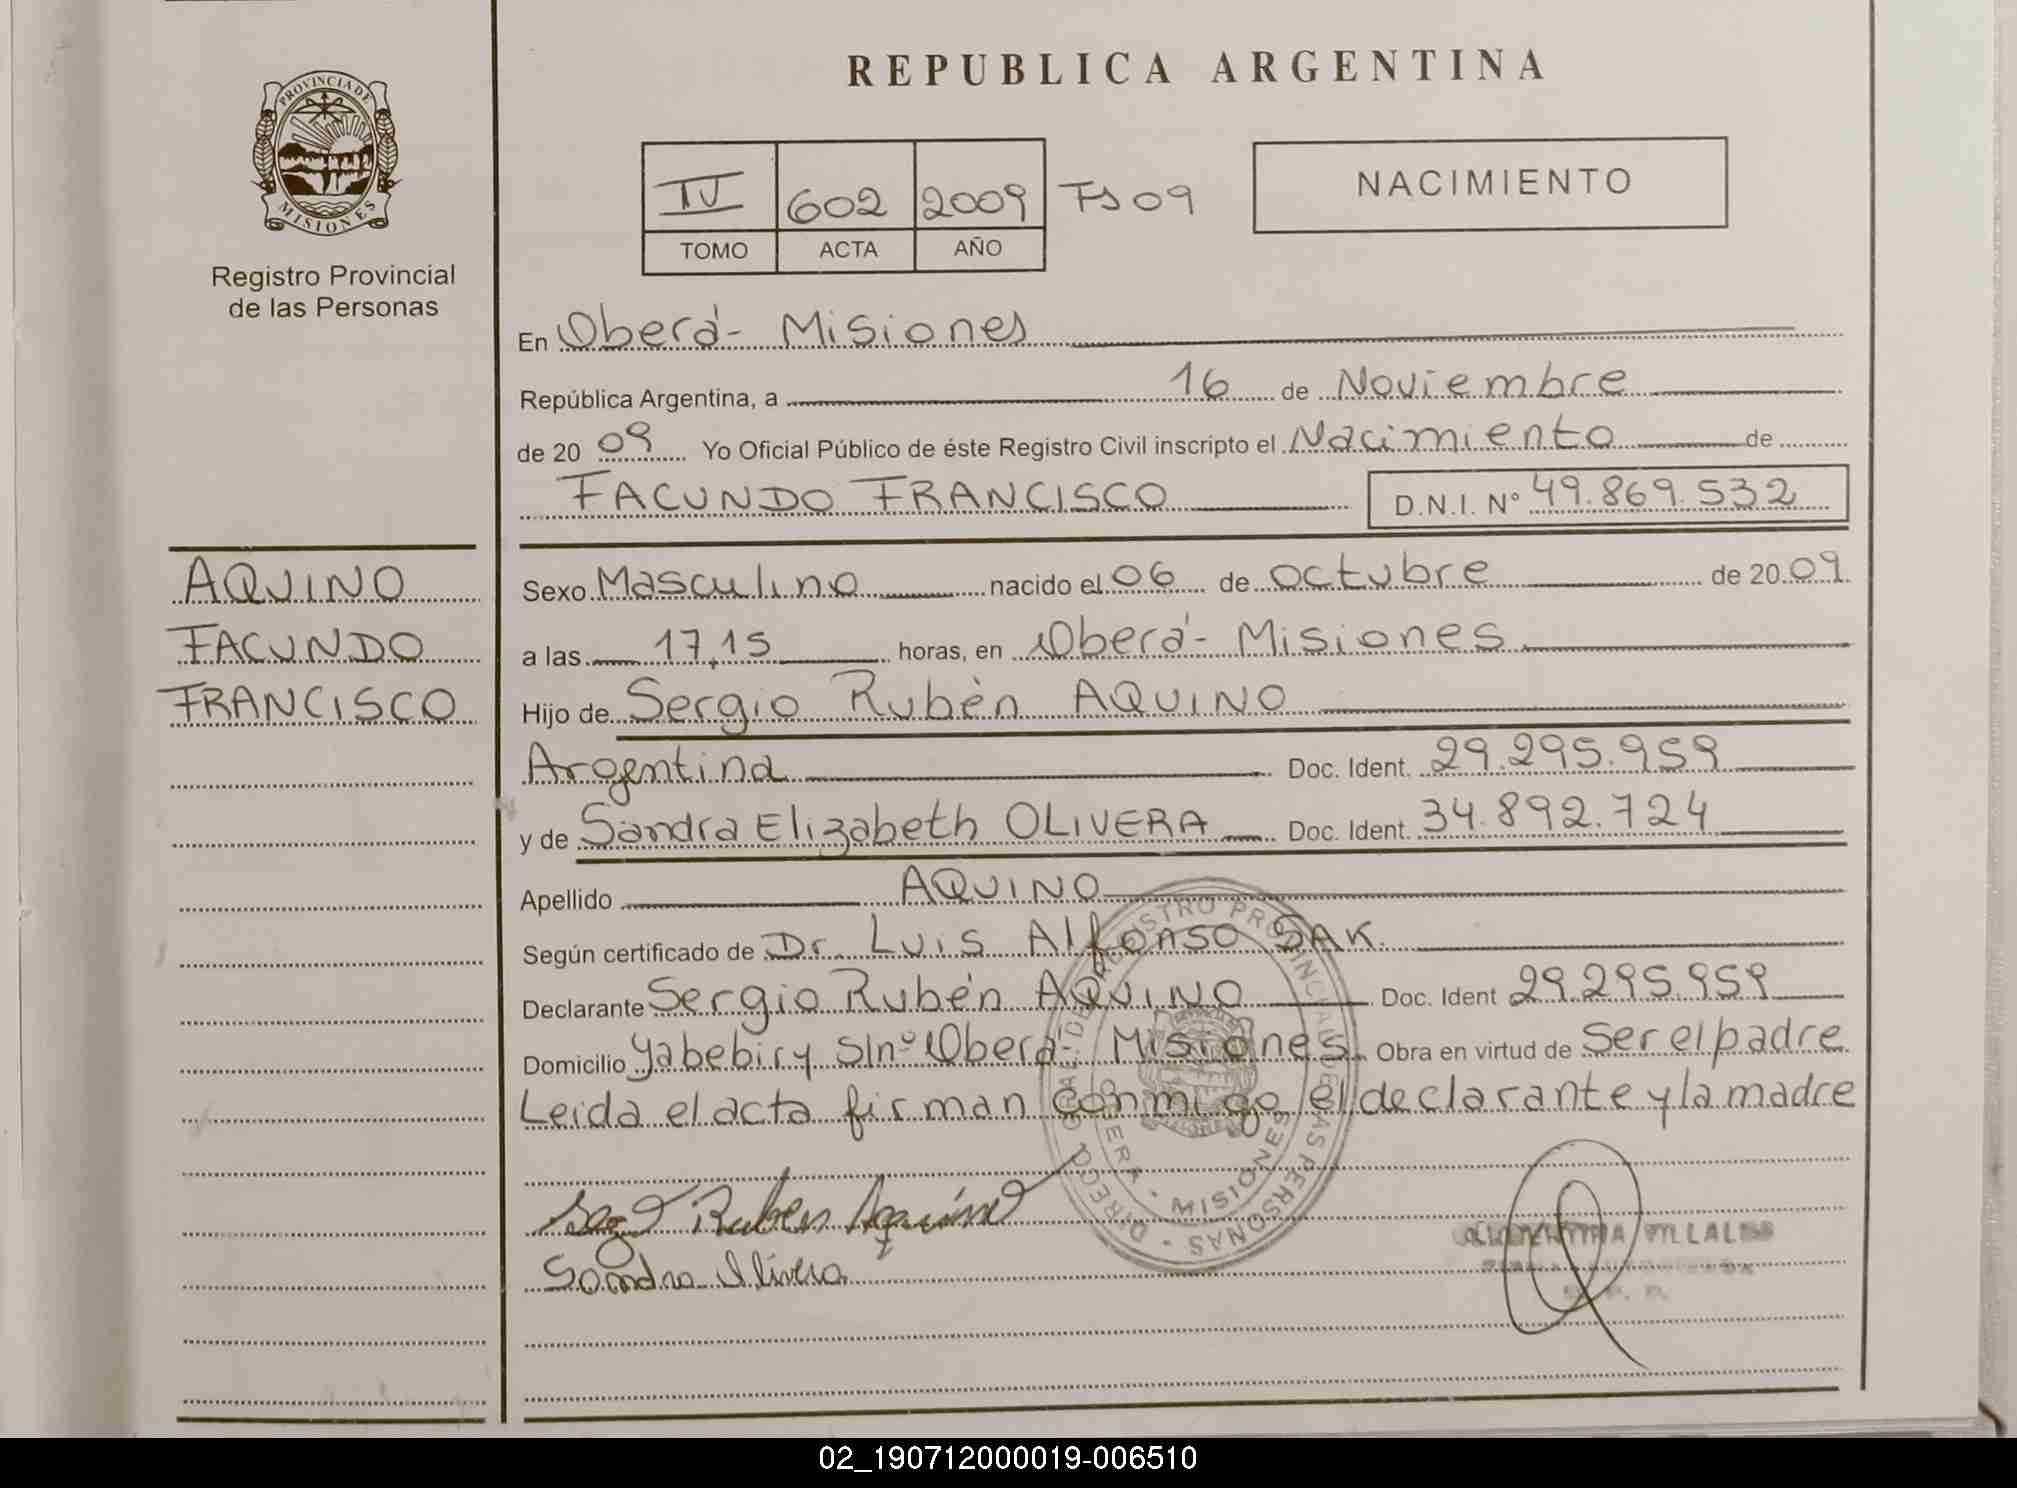 REPUBLICA ARGENTINA
PROVINCIA DE MISIONES
Registro Provincial
de las Personas
IV 602 2009 Fs 09
TOMO ACTA AÑO
NACIMIENTO
En Oberá - Misiones
República Argentina, a 16 de Noviembre
de 20 09 Yo Oficial Público de éste Registro Civil inscripto el Nacimiento de
FACUNDO FRANCISCO D.N.I. Nº 49.869.532
AQUINO
FACUNDO
FRANCISCO
Sexo Masculino nacido el 06 de octubre de 20 09
a las 17,15 horas, en Oberá - Misiones
Hijo de Sergio Rubén AQUINO
Argentina Doc. Ident. 29.295.959
y de Sandra Elizabeth OLIVERA Doc. Ident. 34.892.724
Apellido AQUINO
Según certificado de Dr. Luis Alfonso SAK.
Declarante Sergio Rubén AQUINO Doc. Ident 29.295.959
Domicilio Yabebiry S/nº Oberá - Misiones Obra en virtud de ser el padre
Leida el acta firman conmigo el declarante y la madre
Ruben Aquino
Sandra Olivera
REGISTRO PROVINCIAL DE LAS PERSONAS
MISIONES
02_190712000019-006510